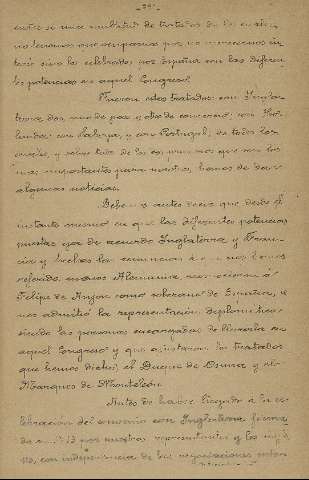 - 29 -
entre sí una multitud de tratados de los cuales
no teniamos que ocuparnos por no merecernos in-
terés sino los celebrados por España con las diferen-
tes potencias en aquel Congreso.
Fueron estos tratados con Ingla-
terra dos, uno de paz y otro de comercio, con Ho-
landa, con Saboya, y con Portugal, de todos los
cuales, y sobre todo de los dos primeros que son los
mas importantes para nosotros, hemos de dar
algunas noticias.
Debemos antes decir que desde el
instante mismo en que las diferentes potencias
puestas ya de acuerdo Inglaterra y Fran-
cia y hechas las renuncias á que nos hemos
referido, menos Alemania, reconocieron á
Felipe de Anjou como soberano de España, se
nos admitió la representación diplomática
siendo las personas encargadas de llevarla en
aquel Congreso y que ajustaron los tratados
que hemos dicho, el Duque de Osuna y el
Marques de Monteleón.
Antes de haber llegado á la ce-
lebración del convenio con Inglaterra firma-
do en 1713 por nuestros representantes y los
con independencia de las negociaciones